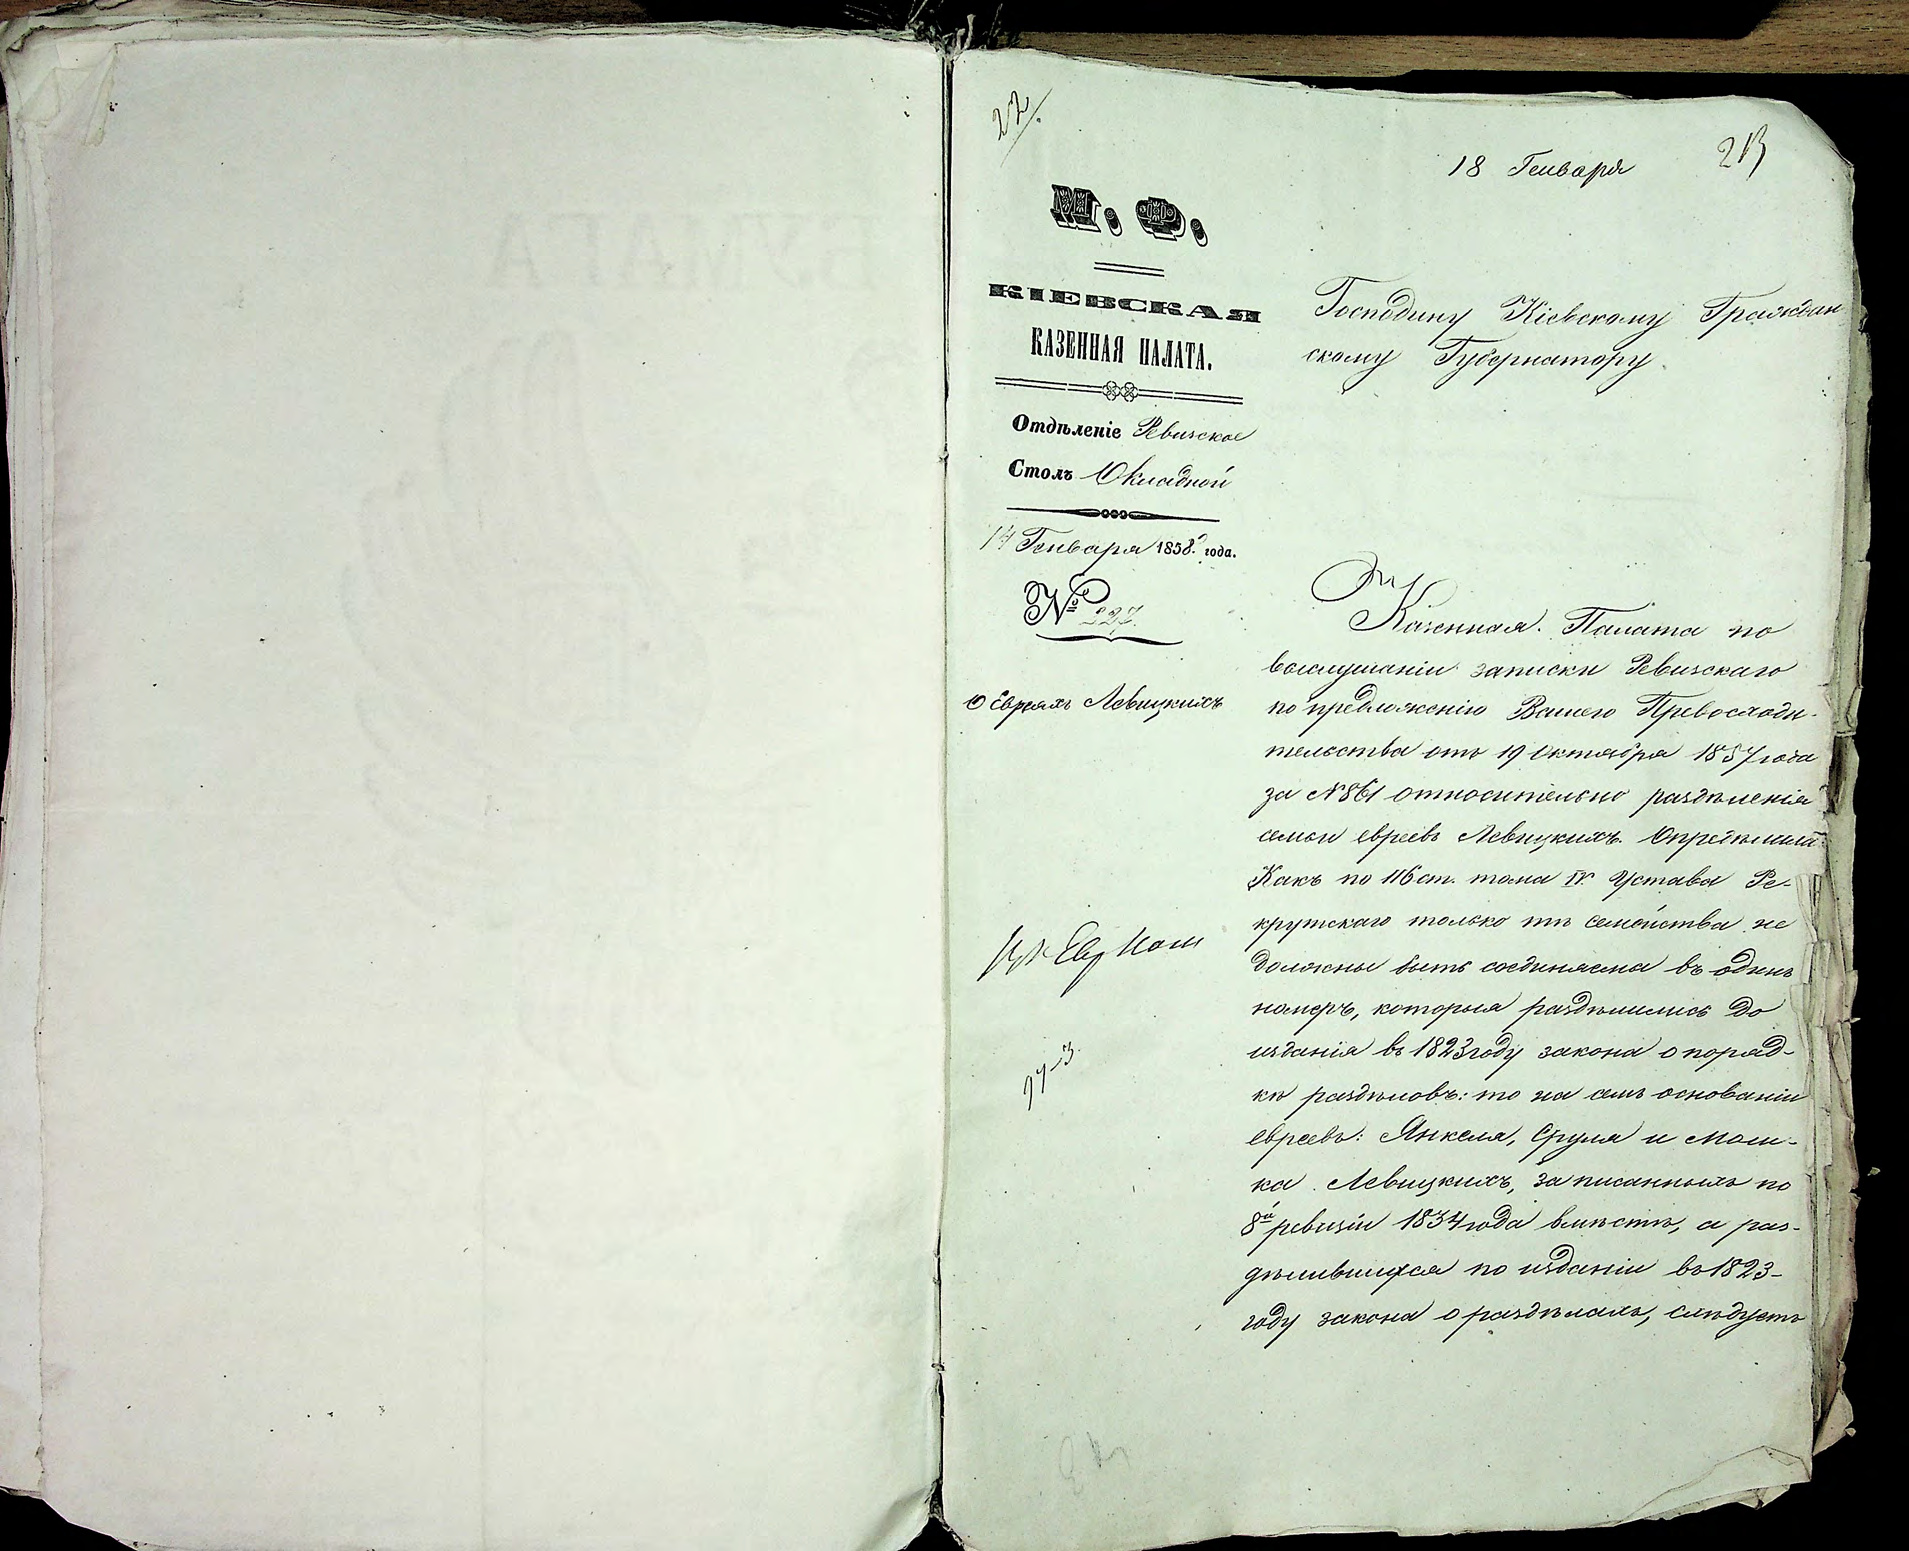 22/.
18 Генваря
213
М. Ф.
КІЕВСКАЯ
КАЗЕННАЯ ПАЛАТА.
Отдѣленіе Ревизское
Столъ Окладной
14 Генваря 1858. года.
№ 227.
О Евреяхъ Левицкихъ
Господину Кіевскому Граждан
скому Губернатору.
Казенная Палата по
выслушаніи записки Ревизскаго
по предложенію Вашего Превосходи-
тельства отъ 19 Октября 1857 года
за №861 относительно раздѣленія
семьи евреевъ Левицкихъ. Опредѣлила:
Какъ по 116 ст. тома IV. Устава Ре-
крутскаго только тѣ семейства не
должны быть соединяема въ одинъ
номеръ, которыя раздѣлились до
изданія въ 1823 году закона о поряд-
кѣ раздѣловъ: то на семъ основаніи
евреевъ: Янкеля, Сруля и Мош-
ка Левицкихъ, записанныхъ по
8й ревизіи 1834 года вмѣстѣ, а раз-
дѣлившихся по изданіи въ 1823-
году закона о раздѣлахъ, слѣдуетъ